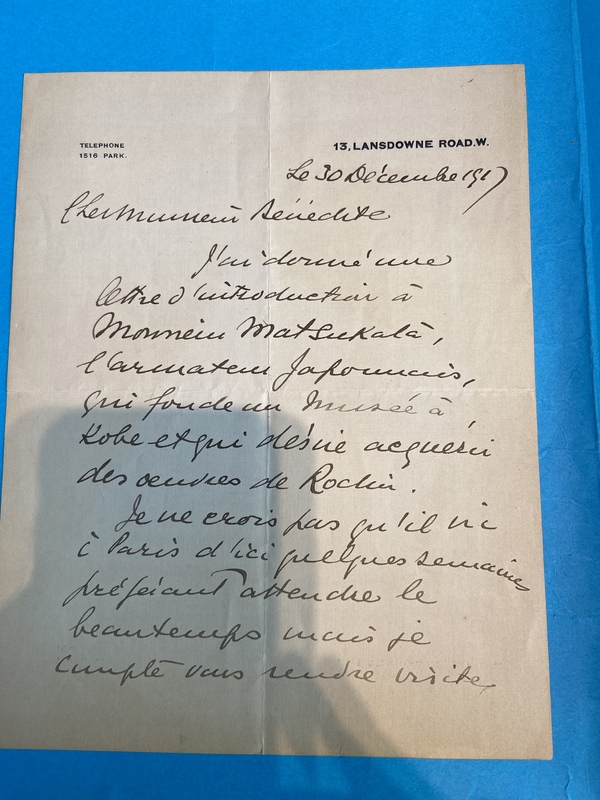 TELEPHONE
1516 PARK.
13, LANSDOWNE ROAD.W.
Le 30 Décembre 1917
Cher Monsieur Bénédite
J'ai donné une
lettre d'introduction à
Monsieur Matsukata,
l'armateur Japonnais,
qui fonde un Musée à
Kobe et qui désire acquérir
des œuvres de Rodin.
Je ne crois pas qu'il
à Paris d'ici quelques semaines
préférant attendre le
beau temps mais je
compte vous rendre visite